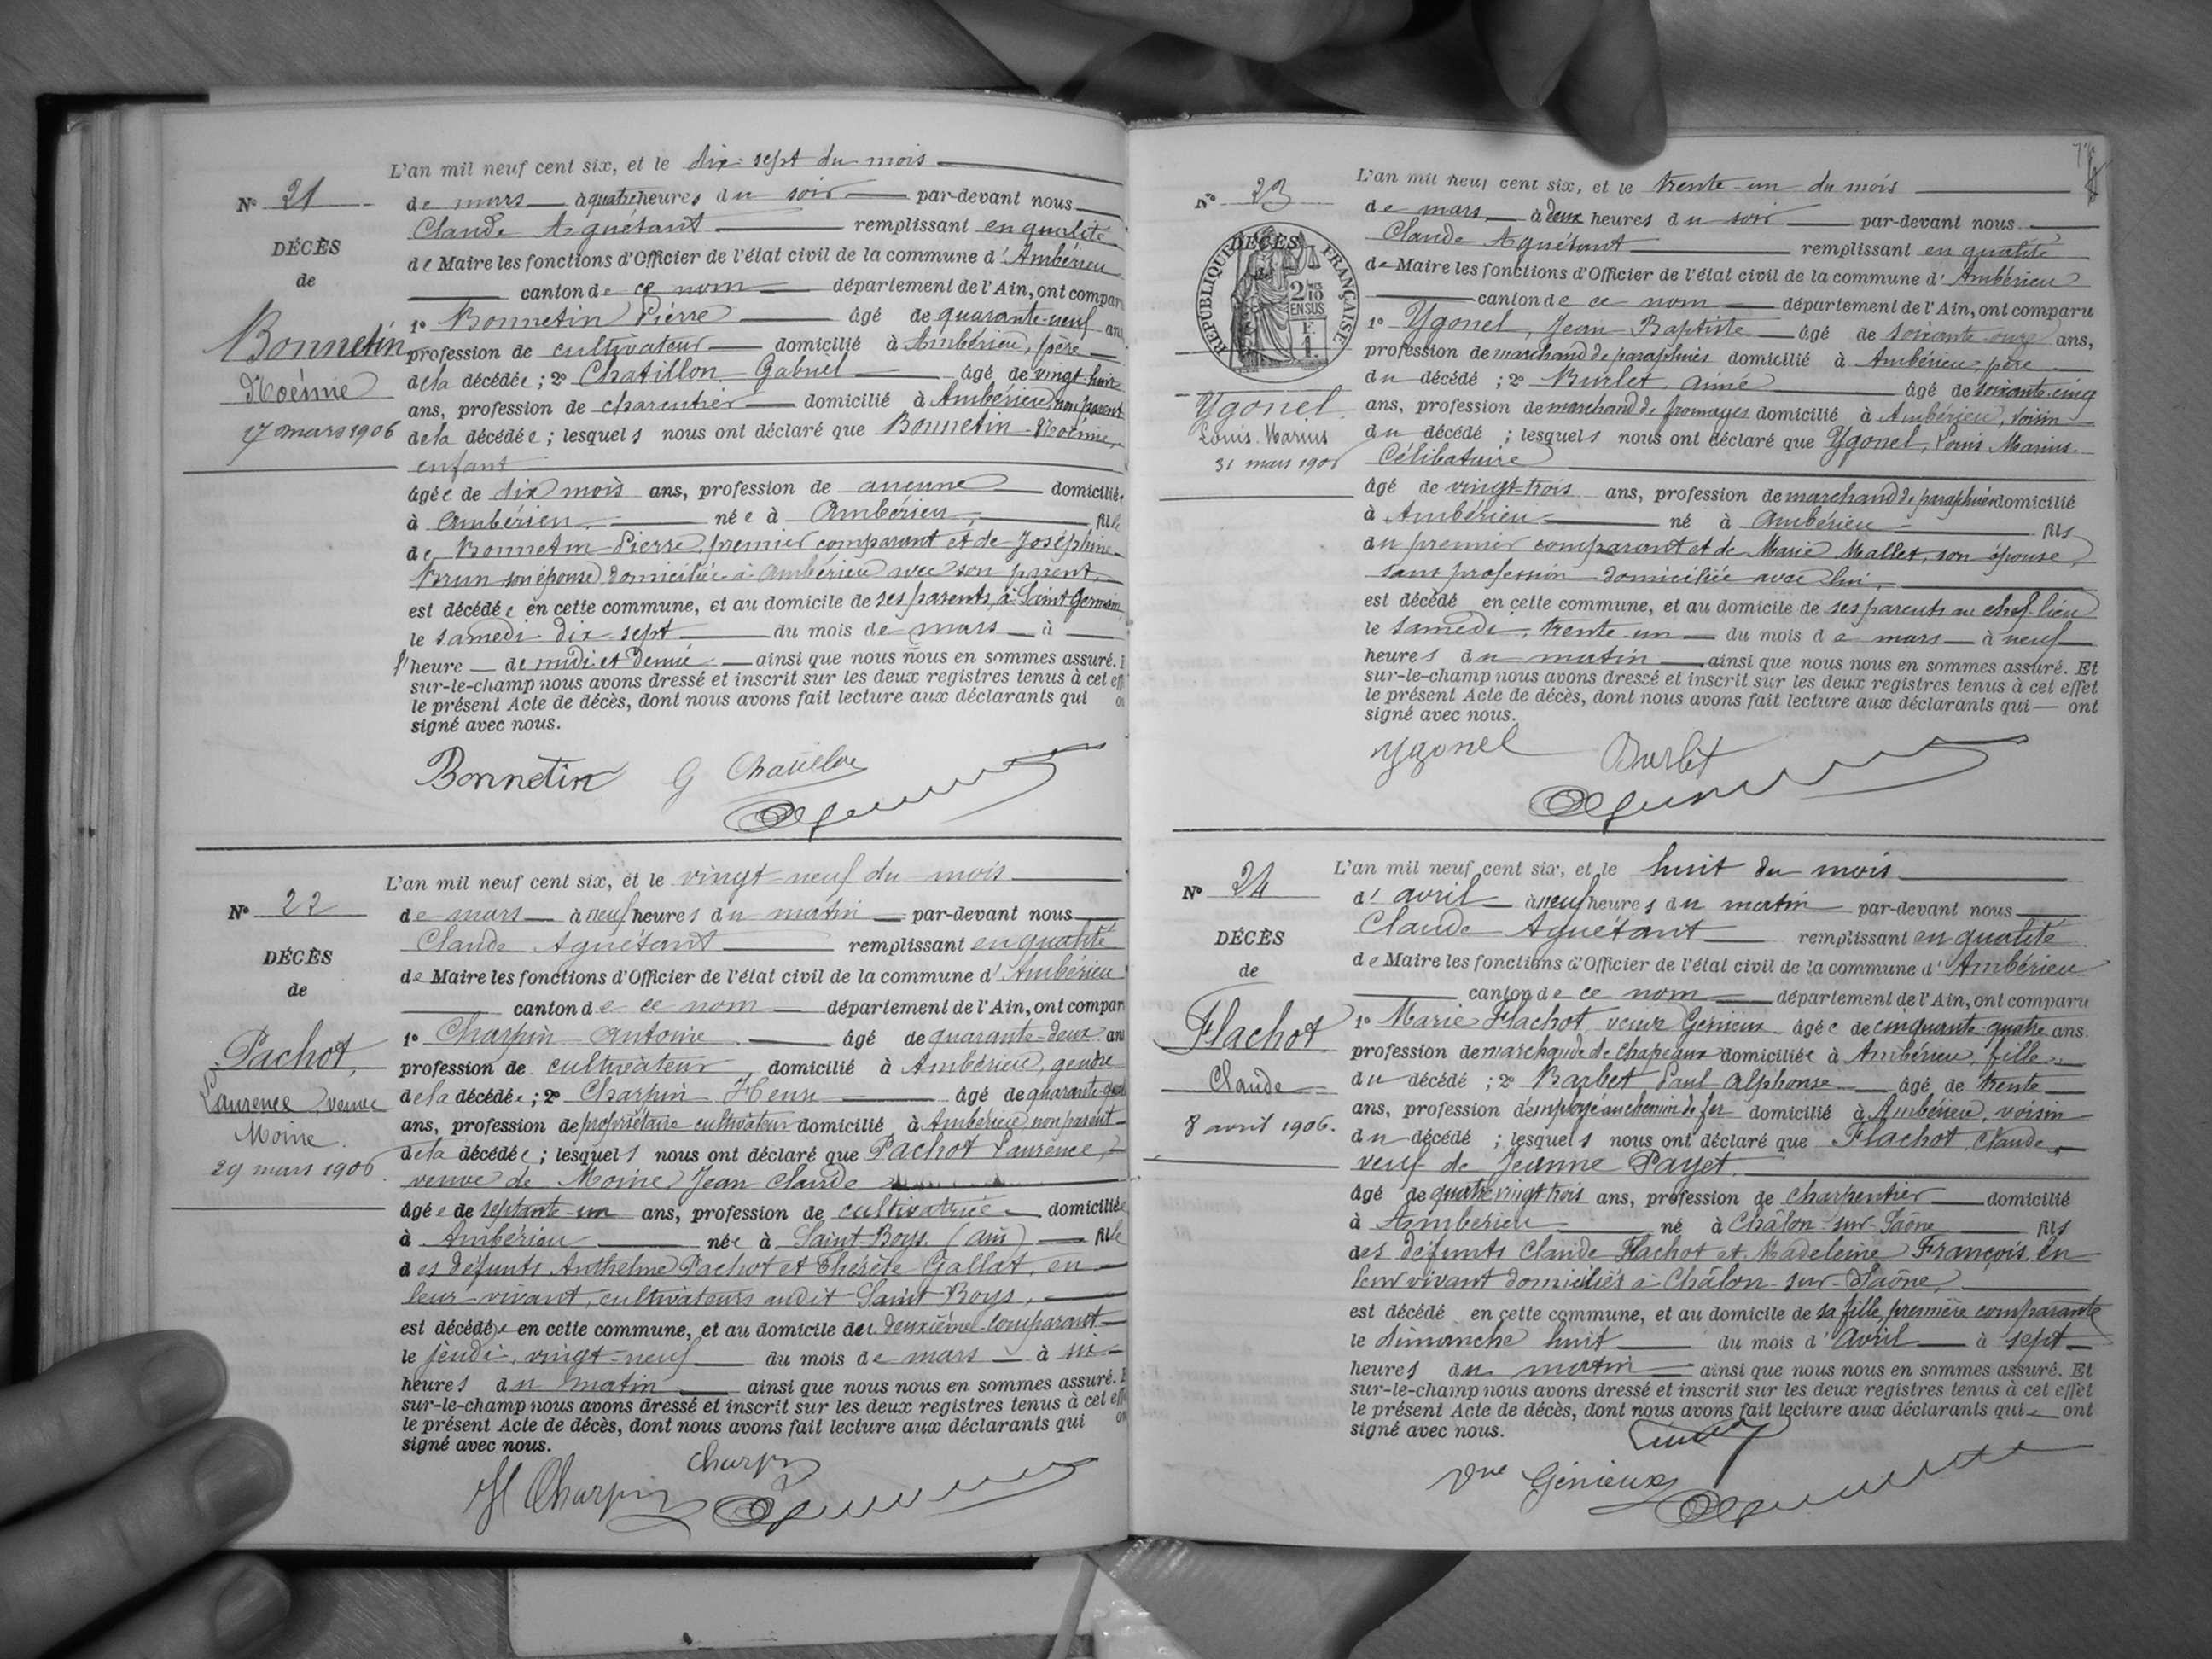 L'an mil neuf cent six, et le dix-sept du mois
N° 21
de mars à quatre heures du soir par-devant nous
Claude Aguétant remplissant en qualité
DÉCÈS
de Maire les fonctions d'Officier de l'état civil de la commune d'Ambérieu
de
canton de ce nom département de l'Ain, ont compar
1° Bonnetin Pierre âgé de quarante-neuf ans
Bonnetin
profession de cultivateur domicilié à Ambérieu, père
Noémie
de la décédée ; 2° Chatillon Gabriel âgé de vingt huit
ans, profession de charentier domicilié à Ambérieu, non parent
17 mars 1906
de la décédée ; lesquels nous ont déclaré que Bonnetin Noémie,
enfant
âgée de dix mois ans, profession de aucune domiciliée
à Ambérieu née à Ambérieu, fille
de Bonnetin Pierre, premier comparant et de Joséphine
Brun son épouse domiciliée à Ambérieu avec son parent,
est décédée en cette commune, et au domicile de ses parents, à Saint Germain
le samedi dix sept du mois de mars à
l'heure de midi et demie ainsi que nous nous en sommes assuré.
sur-le-champ nous avons dressé et inscrit sur les deux registres tenus à cet eff
le présent Acte de décès, dont nous avons fait lecture aux déclarants qui
signé avec nous.
Bonnetin G Chatillon
L'an mil neuf cent six, et le vingt-neuf du mois
N° 22
de mars à neuf heures du matin par-devant nous
Claude Aguétant remplissant en qualité
DÉCÈS
de Maire les fonctions d'Officier de l'état civil de la commune d'Ambérieu
de
canton de ce nom département de l'Ain, ont compar
1° Charpin Antoine âgé de quarante-deux ans
Pachot,
profession de cultivateur domicilié à Ambérieu, gendre
Laurence, veuve
de la décédée ; 2° Charpin Henri âgé de quarante
Moine.
ans, profession de propriétaire cultivateur domicilié à Ambérieu non parent
29 mars 1906
de la décédée ; lesquels nous ont déclaré que Pachot Laurence,
veuve de Moine Jean Claude
âgée de septante-un ans, profession de cultivatrice domiciliée
à Ambérieu née à Saint-Boys (ain) fille
des défunts Anthelme Pachot et Thérèse Gallat, en
leur vivant, cultivateurs audit Saint Boys,
est décédée en cette commune, et au domicile du deuxième comparant
le jeudi, vingt-neuf du mois de mars à six
heures du matin ainsi que nous nous en sommes assuré.
sur-le-champ nous avons dressé et inscrit sur les deux registres tenus à cet eff
le présent Acte de décès, dont nous avons fait lecture aux déclarants qui
signé avec nous.
Charpin
H Charpin
L'an mil neuf cent six, et le trente-un du mois
N° 23
de mars à deux heures du soir par-devant nous
Claude Aguétant remplissant en qualité
DÉCÈS
RÉPUBLIQUE FRANÇAISE
2/10 EN SUS
de Maire les fonctions d'Officier de l'état civil de la commune d'Ambérieu
canton de ce nom département de l'Ain, ont comparu
1° Ygonel, Jean-Baptiste âgé de soixante-onze ans,
profession de marchand de parapluies domicilié à Ambérieu, père
du décédé ; 2° Burlet, Aimé âgé de soixante-cinq
Ygonel
ans, profession de marchand de fromages domicilié à Ambérieu, voisin
Louis Marius
du décédé ; lesquels nous ont déclaré que Ygonel, Louis Marius
31 mars 1906
Célibataire
âgé de vingt-trois ans, profession de marchand de parapluies domicilié
à Ambérieu né à Ambérieu fils
du premier comparant et de Marie Mallet, son épouse,
sans profession domiciliée avec lui,
est décédé en cette commune, et au domicile de ses parents au chef-lieu
le samedi, trente-un du mois de mars à neuf
heures du matin ainsi que nous nous en sommes assuré. Et
sur-le-champ nous avons dressé et inscrit sur les deux registres tenus à cet effet
le présent Acte de décès, dont nous avons fait lecture aux déclarants qui ont
signé avec nous.
Ygonel Burlet
L'an mil neuf cent six, et le huit du mois
N° 24
d'avril à neuf heures du matin par-devant nous
Claude Aguétant remplissant en qualité
DÉCÈS
de Maire les fonctions d'Officier de l'état civil de la commune d'Ambérieu
de
canton de ce nom département de l'Ain, ont comparu
Flachot
1° Marie Flachot, veuve Génieux âgée de cinquante-quatre ans.
profession de marchande de chapeaux domiciliée à Ambérieu, fille
Claude
du décédé ; 2° Barbet, Paul Alphonse âgé de trente
ans, profession d'employé au chemin de fer domicilié à Ambérieu, voisin
8 avril 1906.
du décédé ; lesquels nous ont déclaré que Flachot, Claude,
veuf de Jeanne Payet
âgé de quatre vingt trois ans, profession de charpentier domicilié
à Ambérieu né à Châlon-sur-Saône fils
des défunts Claude Flachot et Madeleine François, en
leur vivant domiciliés à Châlon-sur-Saône,
est décédé en cette commune, et au domicile de sa fille, première comparante
le dimanche huit du mois d'avril à sept
heures du matin ainsi que nous nous en sommes assuré. Et
sur-le-champ nous avons dressé et inscrit sur les deux registres tenus à cet effet
le présent Acte de décès, dont nous avons fait lecture aux déclarants qui ont
signé avec nous.
Vve Génieux